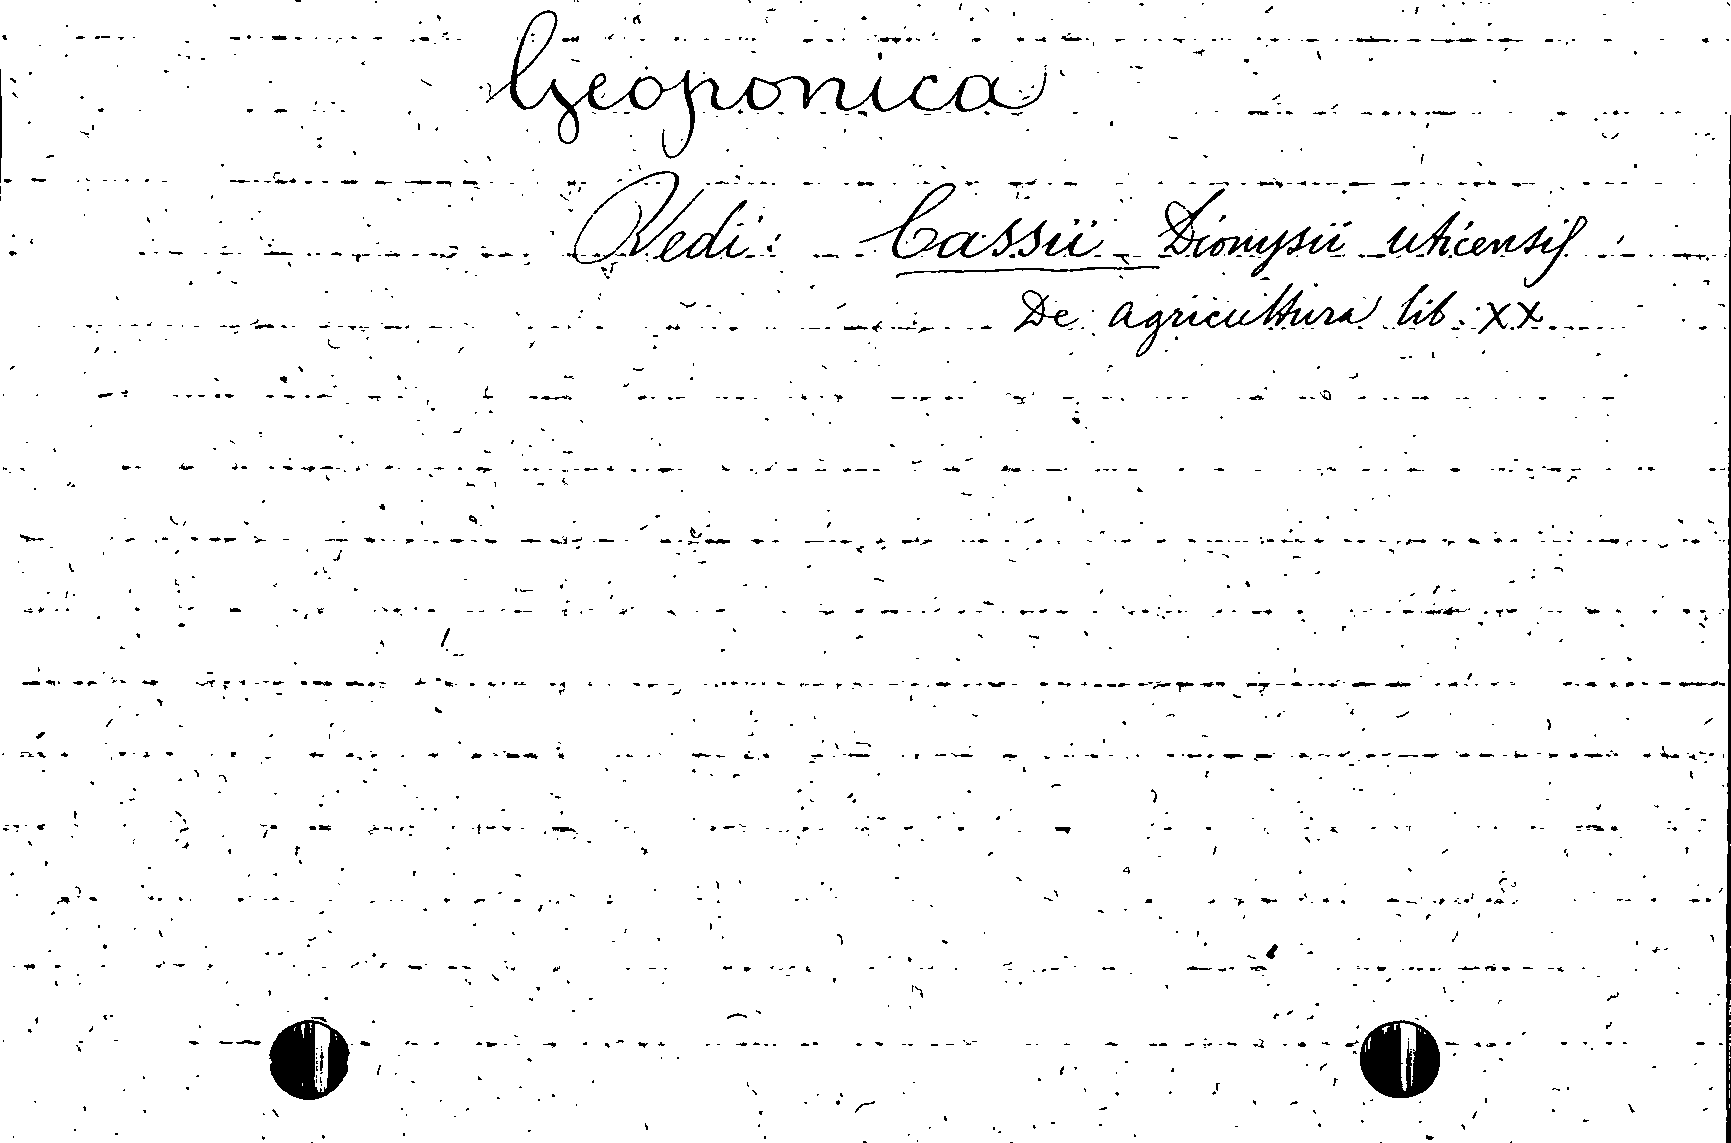 Geoponica
Vedi: Cassii Dionysii uticensis
De agricultura lib. XX